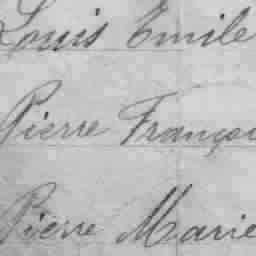 Louis Emile
Pierre Franço
Pierre Marie